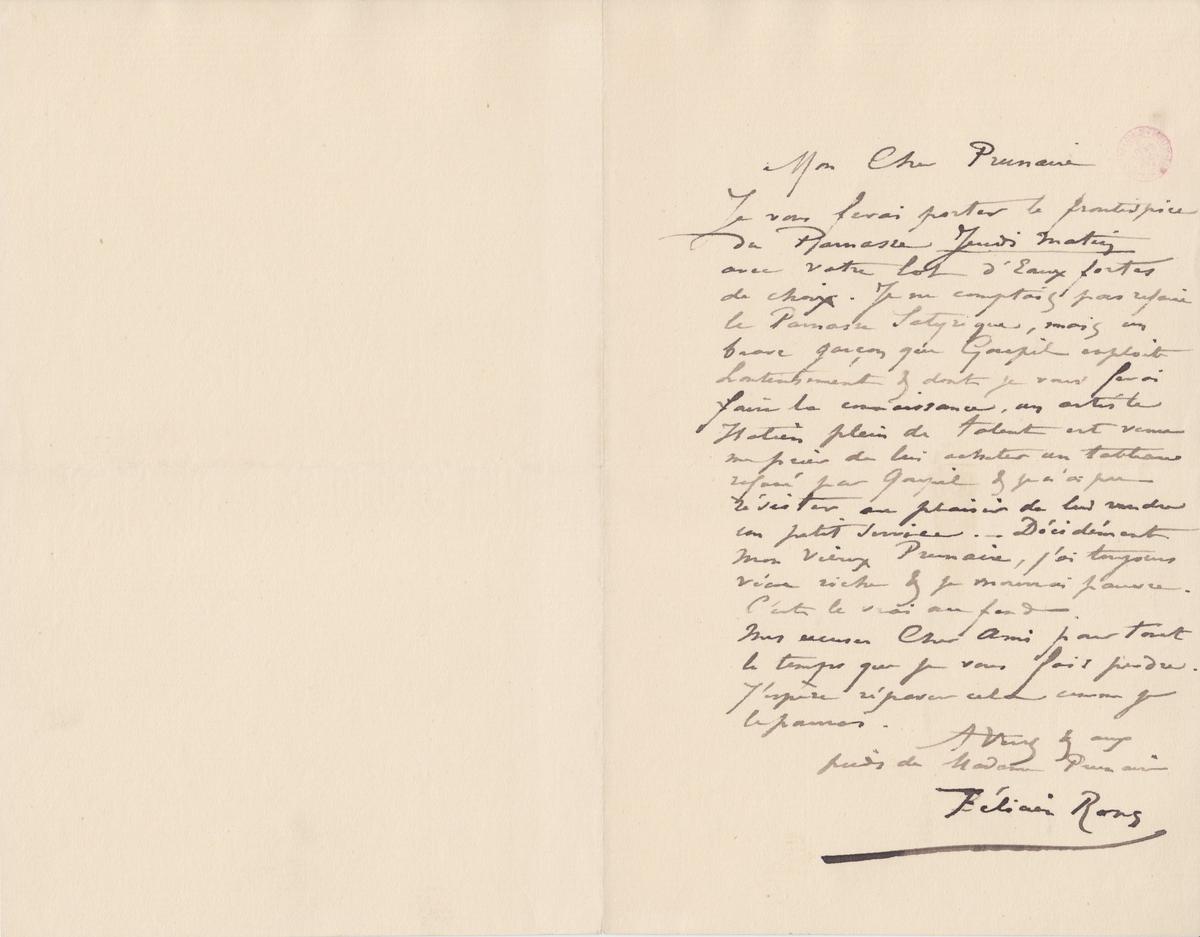 Mon Cher Prunaire
Je vous ferai porter le frontispice
du Parnasse Jeudi matin
avec votre lot d'Eaux fortes
de choix. Je ne comptais pas refaire
le Parnasse Satyrique, mais un
brave garçon que Goupil exploit
honteusement & dont je vous ferai
faire la connaissance, un artiste
Italien plein de talent est venu
me prier de lui acheter un tableau
refusé par Goupil & je n'ai pu
résister au plaisir de lui rendre
un petit service. – Décidément
mon vieux Prunaire, j'ai toujours
vécu riche & je mourrai pauvre.
C'est le vrai au fond
Mes excuses Cher Ami pour tout
le temps que je vous fais perdre.
J'espère réparer cela comme je
le pourrai.
A Vous & aux
pieds de Madame Prunaire
Félicien Rops